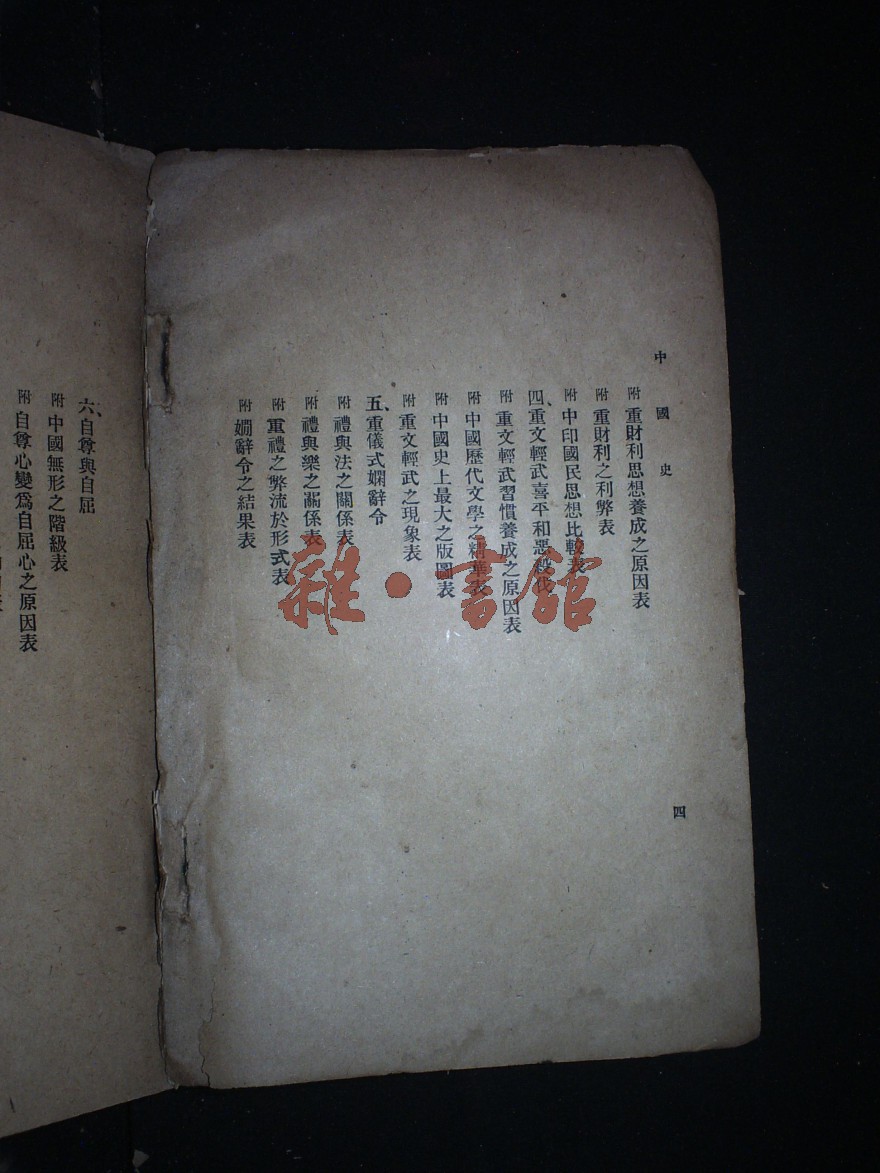 中國史
附 重財利思想養成之原因表
附 重財利之利弊表
附 中印國民思想比較表
四、重文輕武喜平和惡殺伐
附 重文輕武習慣養成之原因表
附 中國歷代文學之精華表
附 中國史上最大之版圖表
附 重文輕武之現象表
五、重儀式嫻辭令
附 禮與法之關係表
附 禮與樂之關係表
附 重禮之弊流於形式表
附 嫺辭令之結果表
四
六、自尊與自屈
附 中國無形之階級表
附 自尊心變爲自屈心之原因表
雜·書館